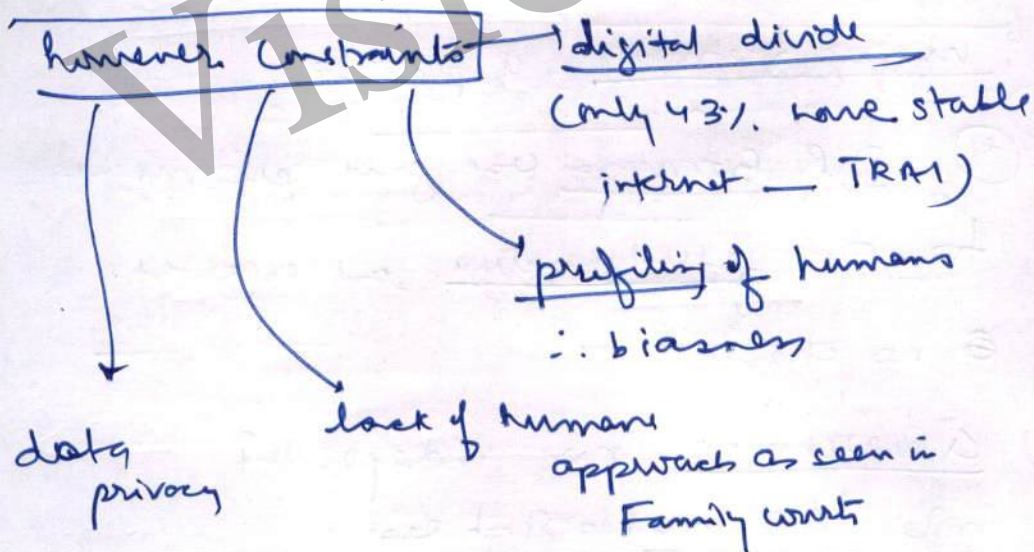 Visi
however Constraints → digital divide
(only 43%. have stable
internet — TRAI)
profiling of humans
∴ biasness
data
privacy
lack of humane
approach as seen in
Family courts